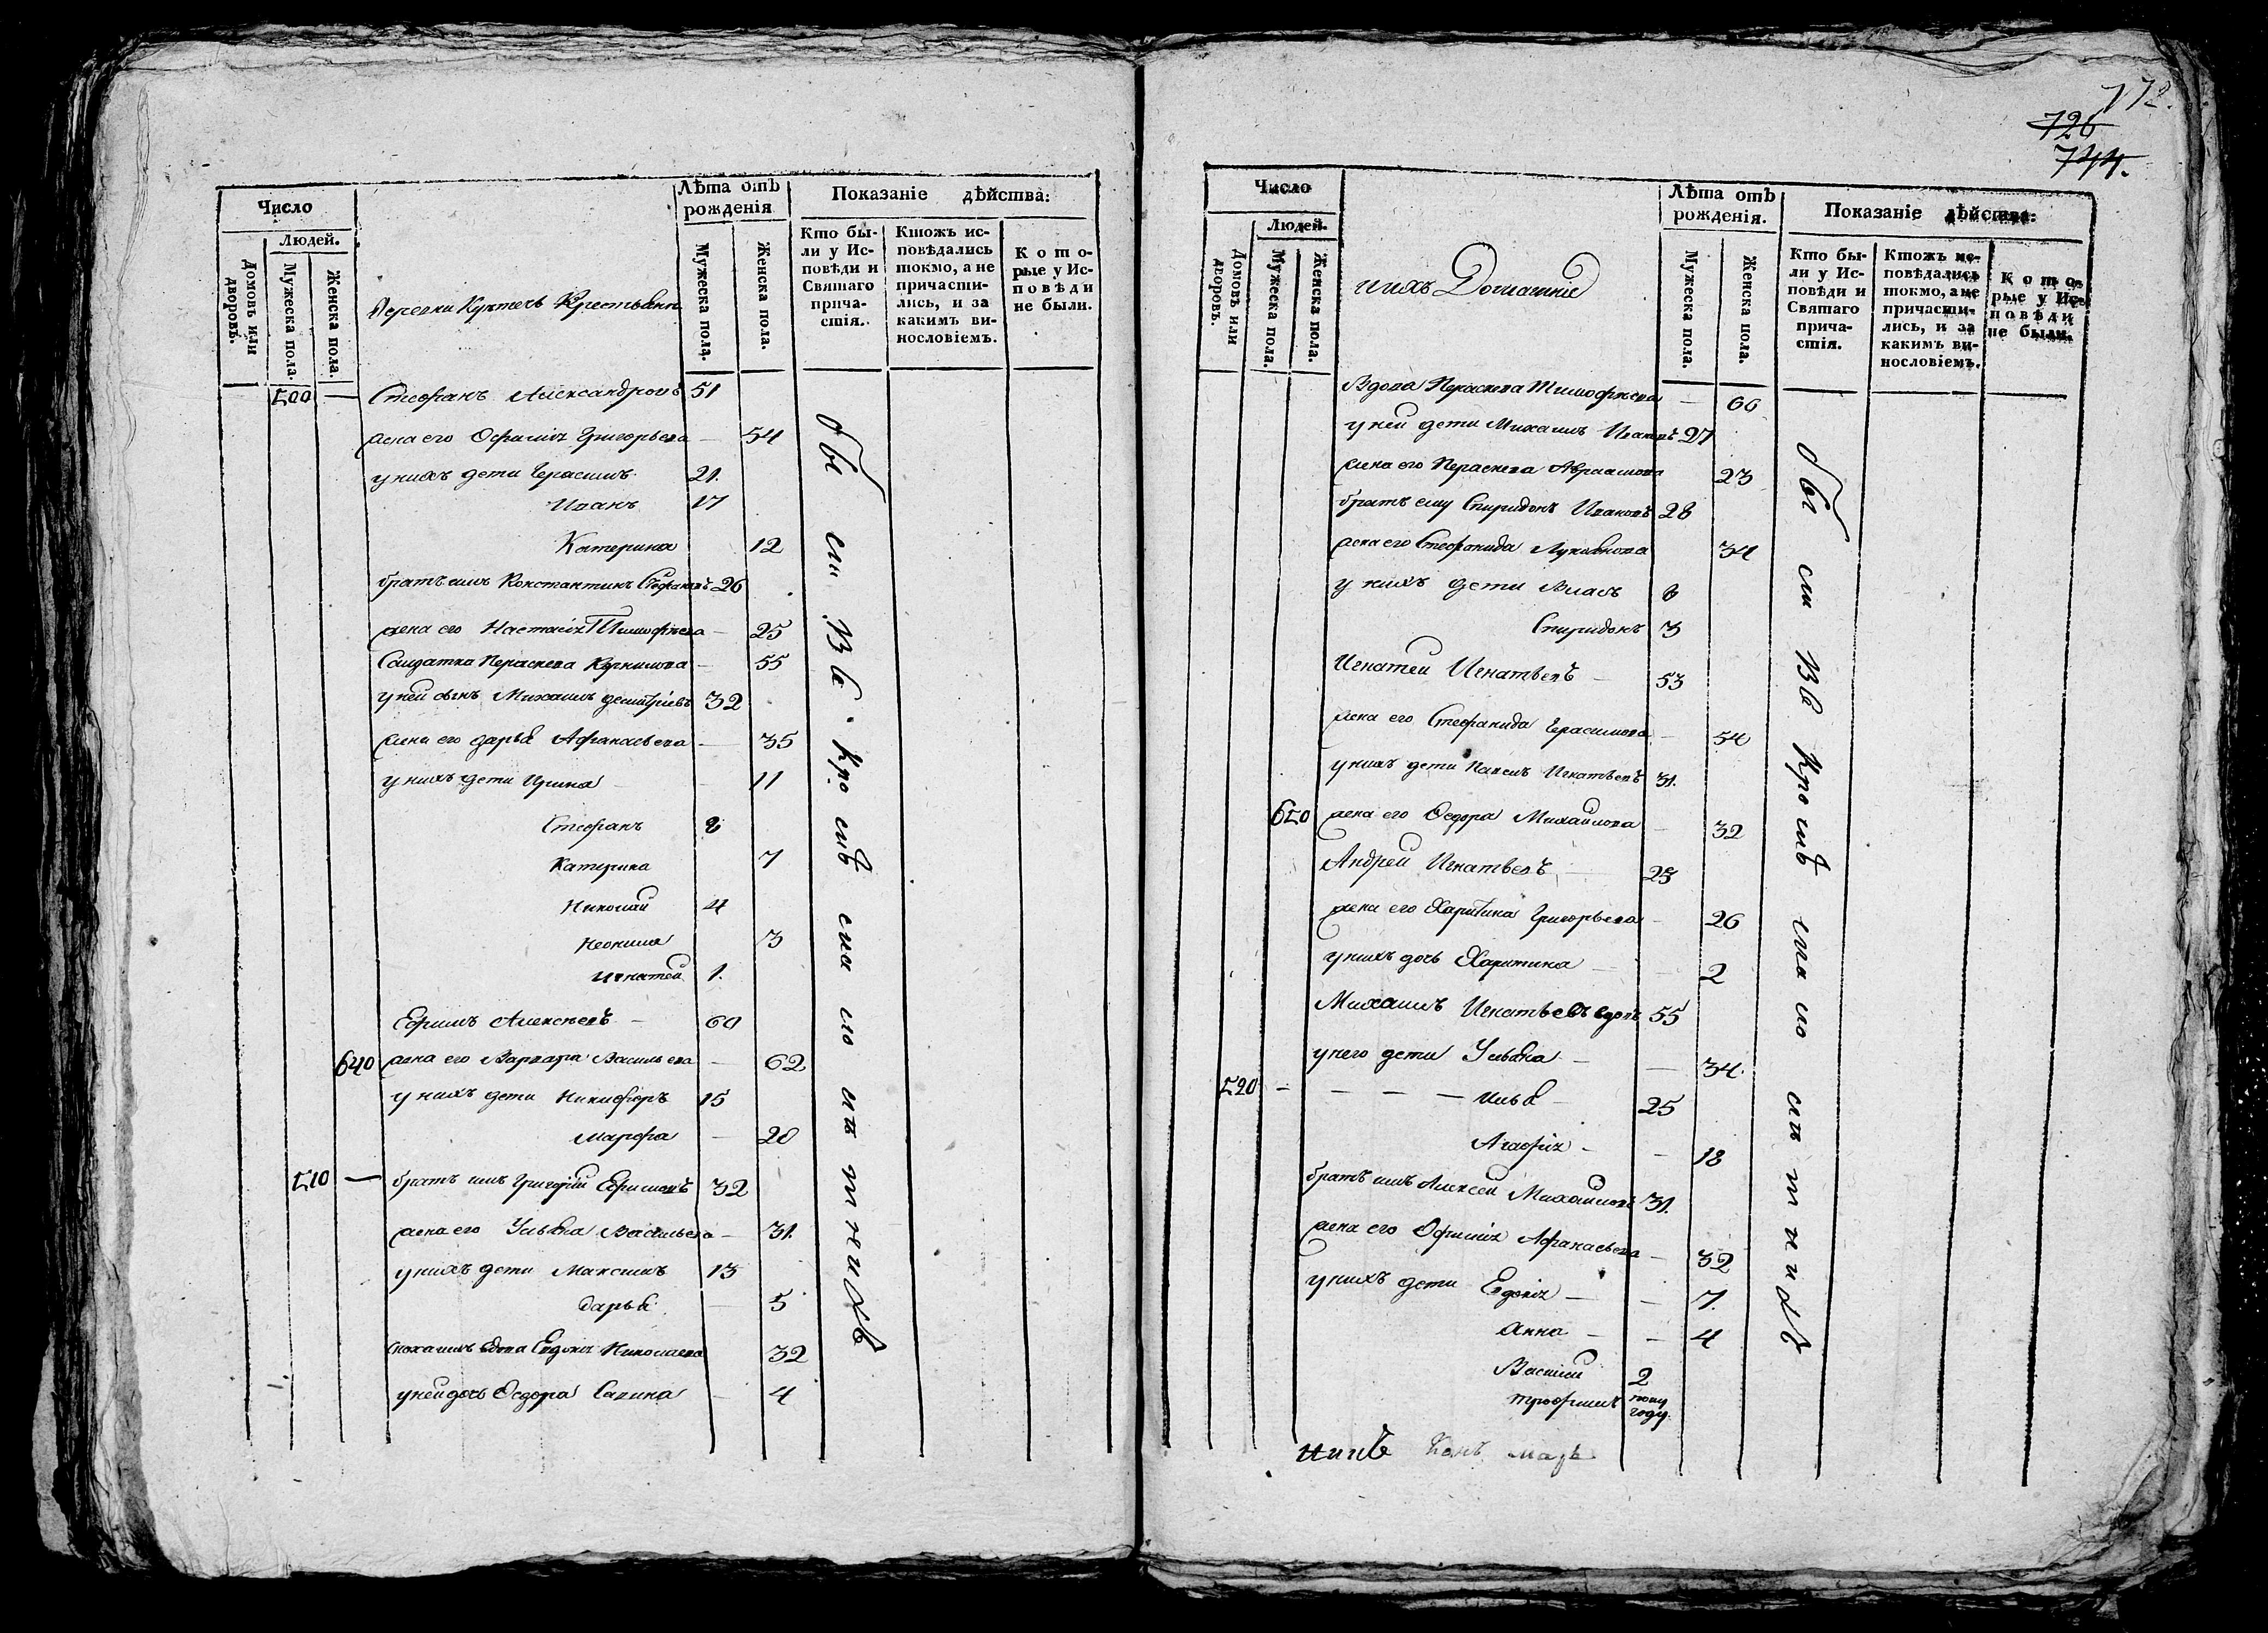 Число
Людей.
Домовъ или дворовъ.
Мужеска пола.
Женска пола.
Деревни Крестьяне
Лѣта отъ рожденія
Мужеска пола.
Женска пола.
Показаніе дѣйства:
Кто были у Исповѣди и Святаго причастія.
Ктожъ исповѣдались токмо, а не причастились, и за какимъ винословіемъ.
Которые у Исповѣди не были.
500 — Стефанъ Александровъ 51
жена его Офимія Григорьева — 54
у нихъ дети Герасимъ 21.
Иванъ 17
Катерина 12
братъ имъ Константинъ Стефановъ 26
жена его Настасія Тимофѣева — 25
Солдатка Параскева Корнилова — 55
у ней сынъ Михаилъ Дмитріевъ 32
жена его Дарья Афанасьева — 35
у нихъ дети Ирина — 11
Стефанъ 8
Катерина 7
Николай 4
Неонила 3
Игнатей 1.
Ефимъ Алексѣевъ — 60
640 жена его Варвара Васильева — 62
у нихъ дети Никифоръ 15
Марфа — 20
510 — братъ имъ Григорій Ефимовъ 32
жена его Ульяна Васильева — 31.
у нихъ дети Максимъ 13
Дарья — 5
вдова Евдокія Николаева 32
у ней дочь Федора Савина — 4
772.
726
744.
Число
Людей.
Домовъ или дворовъ.
Мужеска пола.
Женска пола.
ихъ Домашніе
Лѣта отъ рожденія.
Мужеска пола.
Женска пола.
Показаніе дѣйства:
Кто были у Исповѣди и Святаго причастія.
Ктожъ исповѣдались токмо, а не причастились, и за какимъ винословіемъ.
Которые у Исповѣди не были.
Вдова Параскева Тимофѣева — 66
у ней дети Михаилъ Ивановъ 27
жена его Параскева Аврамова 23
братъ ему Спиридонъ Ивановъ 28
жена его Стефанида Лукьянова 34
у нихъ дети Власъ 6
Спиридонъ 3
Игнатей Игнатьевъ — 53
жена его Стефанида Герасимова — 54
у нихъ дети Павелъ Игнатьевъ 31.
650 жена его Федора Михайлова — 32
Андрей Игнатьевъ — 25
жена его Харитина Григорьева — 26
у нихъ дочь Харитина — 2
Михаилъ Игнатьевъ вдовъ 55
у него дети Ульяна — 34.
520 — Илья — 25
Агафія — 18
братъ имъ Алексей Михайловъ 31.
жена его Офимія Афанасьева — 32
у нихъ дети Евдокія — 7.
Анна — 4
Василій 2
Трофимъ полугоду.